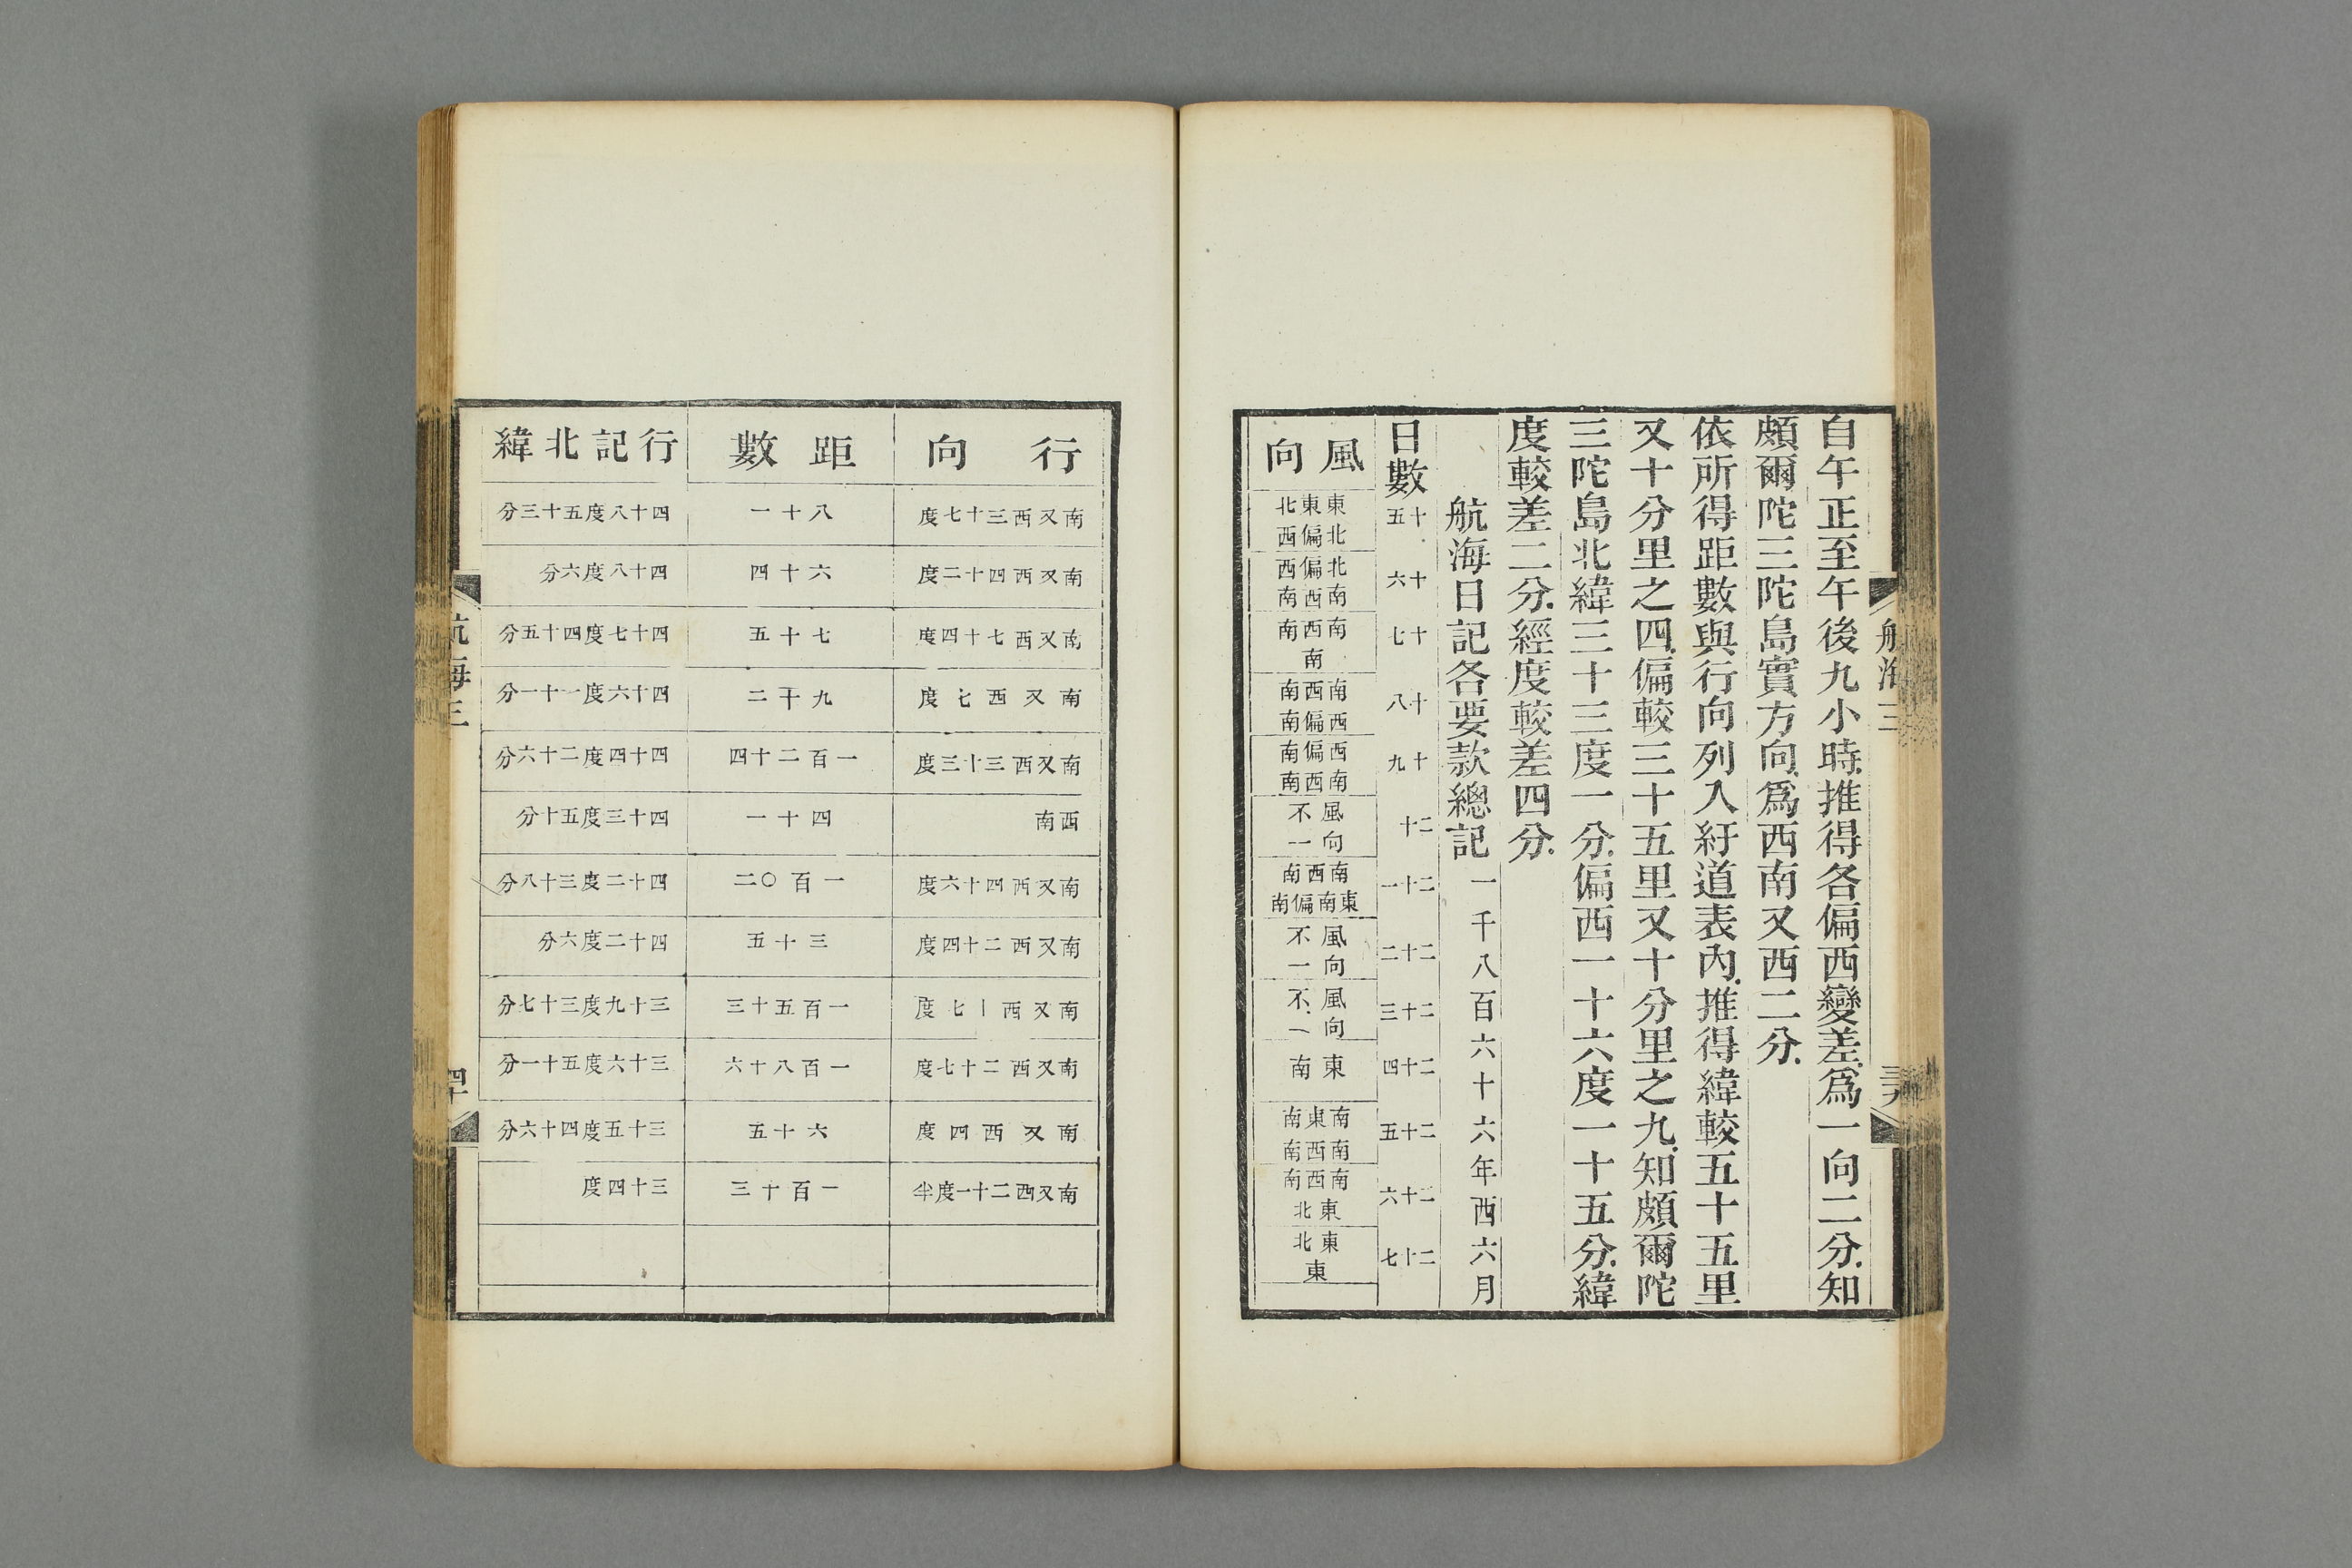 航海三
三十九
自午正至午後九小時.推得各偏西變差.爲一向二分.知
頗爾陀三陀島實方向.爲西南又西二分.
依所得距數與行向列入紆道表內.推得緯較五十五里
又十分里之四.偏較三十五里又十分里之九.知頗爾陀
三陀島北緯三十三度一分.偏西一十六度一十五分.緯
度較差二分.經度較差四分.
航海日記各要款總記 一千八百六十六年西六月
日數
十五
十六
十七
十八
十九
二十
二十一
二十二
二十三
二十四
二十五
二十六
二十七
風向
東東北
北偏西
北偏西
南西南
南西南
南
南西南
西偏南
西偏南
南西南
風向不一
南西南
東南偏南
風向不一
風向不一
東南
南東南
南西南
南西南
東北
東北
東
行向
南又西三十七度
南又西四十二度
南又西七十四度
南又西七度
南又西三十三度
西南
南又西四十六度
南又西二十四度
南又西十七度
南又西二十七度
南又西四度
南又西二十一度半
距數
八十一
六十四
七十五
九十二
一百二十四
四十一
一百〇二
三十五
一百五十三
一百八十六
六十五
一百十三
行記北緯
四十八度五十三分
四十八度六分
四十七度四十五分
四十六度一十一分
四十四度二十六分
四十三度五十分
四十二度三十八分
四十二度六分
三十九度三十七分
三十六度五十一分
三十五度四十六分
三十四度
航海三
四十